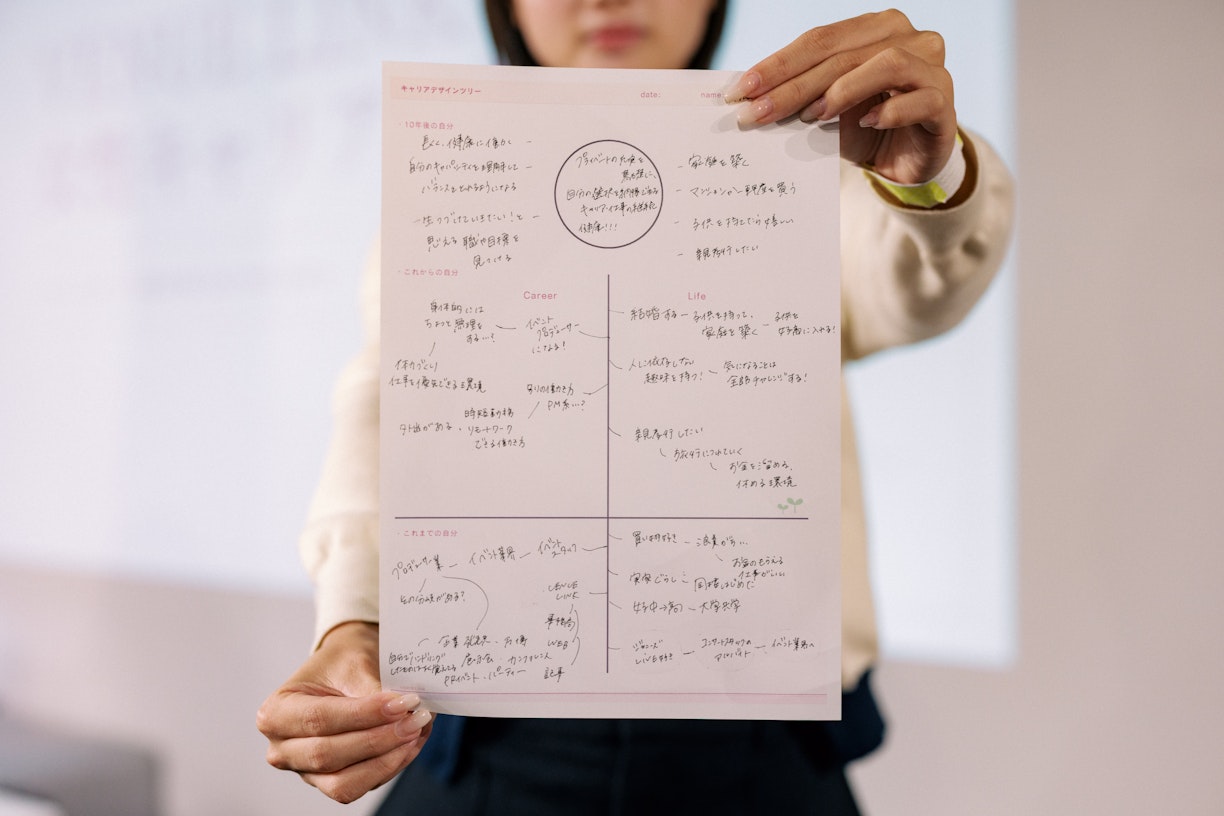 キャリアデザインツリー
date:
name:
・10年後の自分
長く、健康に働く
自分のキャパシティを理解して
バランスをとれるようになる
一生つづけていきたい！と
思える職や目標を
見つける
プライベートの充実を
自分の選択を
キャリア・仕事の
家庭を築く
マンションか一軒家を買う
子供を持てたら嬉しい
親孝行したい
・これからの自分
Career
Life
身体的には
ちょっと無理を
する…？
イベント
プロデューサー
になる！
体力づくり
仕事を優先できる環境
別の働き方
PM系…？
時短勤務
リモートワーク
できる働き方
結婚する
子供を持って、
家庭を築く
子供を
人に依存しない
趣味を持つ！
気になることは
全部チャレンジする！
親孝行したい
お旅行につれていく
お金を溜める、
休める環境
・これまでの自分
プロデューサー業
イベント業界
イベント
スタッフ
WEB
記事
企業
展示会・カンファレンス
PRイベント・パーティー
買い物好き
浪費がち…
お金のもらえる
仕事がいい
実家ぐらし
同棲はじめた
女子中→高
大学共学
ジャニーズ
LIVE好き
コンサートスタッフの
アルバイト
イベント業界へ